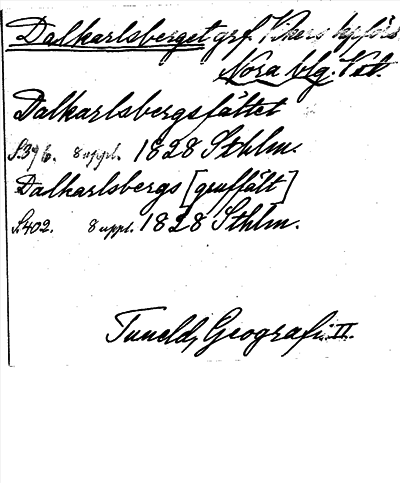 Dalkarlsberget grf. Vikers kpförs
Nora blg. Vst.
Dalkarlsbergsfältet
S. 396. 8 uppl. 1828 Sthlm.
Dalkarlsbergs [gruffält]
S. 402. 8 uppl. 1828 Sthlm.
Tuneld, Geografi II.